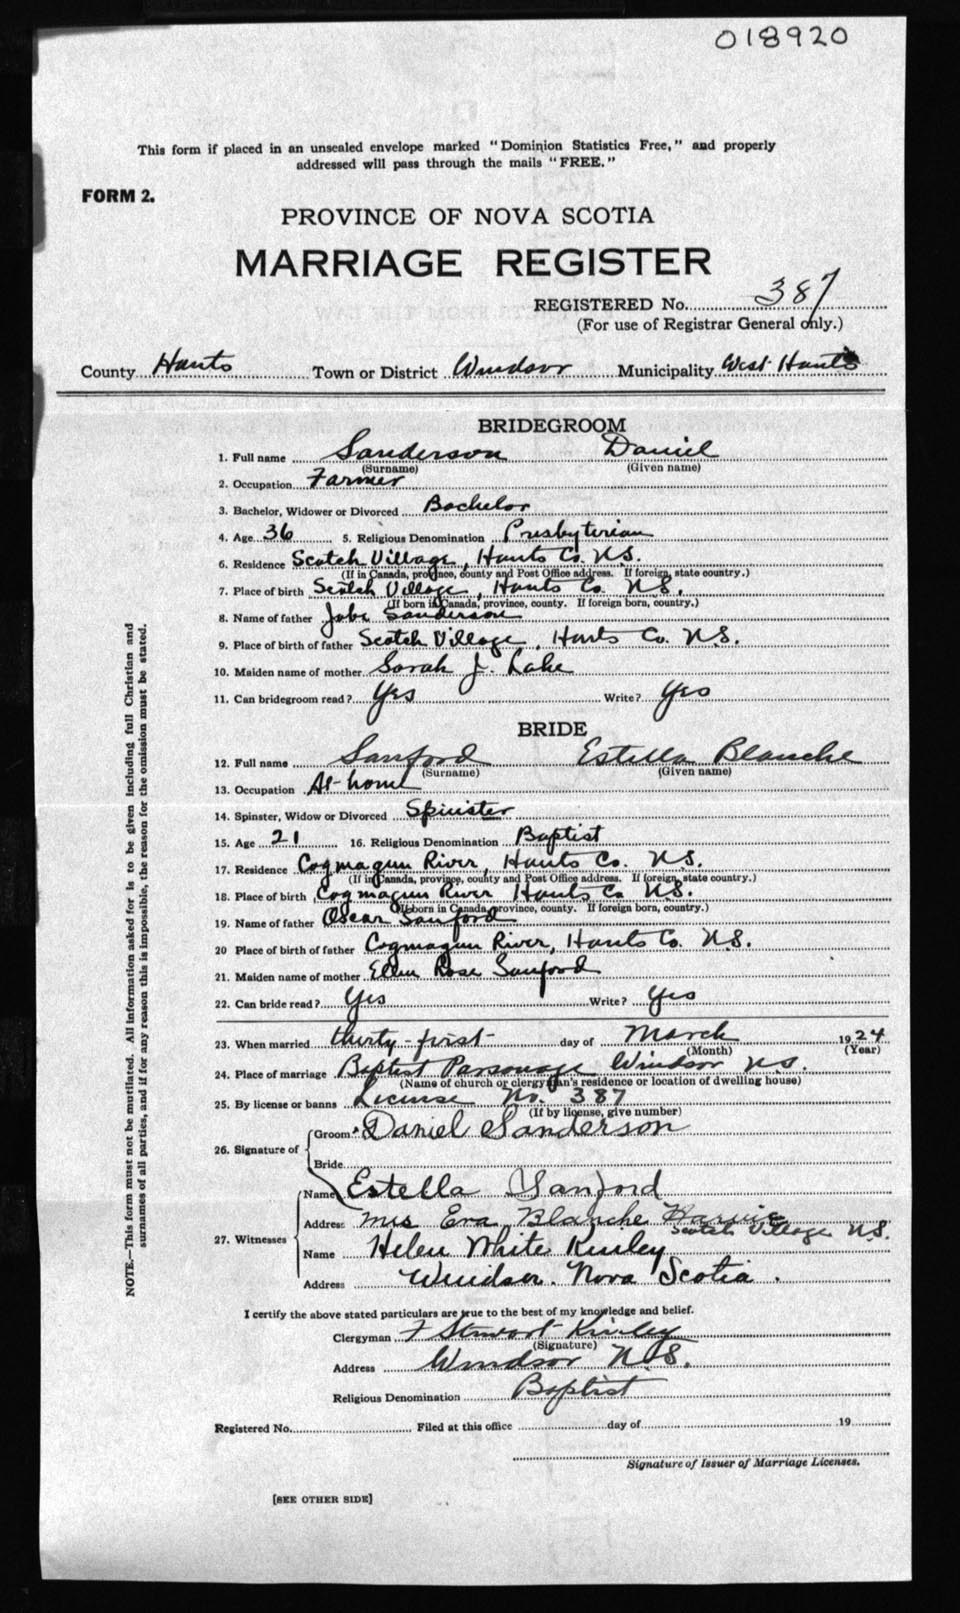 018920
This form if placed in an unsealed envelope marked "Dominion Statistics Free," and properly
addressed will pass through the mails "FREE."
FORM 2.
PROVINCE OF NOVA SCOTIA
MARRIAGE REGISTER
REGISTERED No. 387
(For use of Registrar General only.)
County Hants Town or District Windsor Municipality West Hants
BRIDEGROOM
1. Full name Sanderson Daniel
(Surname) (Given name)
2. Occupation Farmer
3. Bachelor, Widower or Divorced Bachelor
4. Age 36 5. Religious Denomination Presbyterian
6. Residence Scotch Village, Hants Co. N.S.
(If in Canada, province, county and Post Office address. If foreign, state country.)
7. Place of birth Scotch Village, Hants Co. N.S.
(If born in Canada, province, county. If foreign born, country.)
8. Name of father Sanderson
9. Place of birth of father Scotch Village, Hants Co. N.S.
10. Maiden name of mother Sarah J. Lake
11. Can bridegroom read? Yes Write? Yes
BRIDE
12. Full name Sanford Estella Blanche
(Surname) (Given name)
13. Occupation At-home
14. Spinster, Widow or Divorced Spinster
15. Age 21 16. Religious Denomination Baptist
17. Residence Cogmagun River, Hants Co. N.S.
(If in Canada, province, county and Post Office address. If foreign, state country.)
18. Place of birth Cogmagun River Hants Co N.S.
(If born in Canada, province, county. If foreign born, country.)
19. Name of father Oscar Sanford
20 Place of birth of father Cogmagun River, Hants Co. N.S.
21. Maiden name of mother Ellen Rose Sanford
22. Can bride read? Yes Write? Yes
23. When married thirty-first day of March 1924
(Month) (Year)
24. Place of marriage Baptist Parsonage Windsor N.S.
(Name of church or clergyman's residence or location of dwelling house)
25. By license or banns License No. 387
(If by license, give number)
26. Signature of Groom Daniel Sanderson
Bride
Name Estella Sanford
27. Witnesses Address Mrs Eva Blanche Harvie
Scotch Village N.S.
Name Helen White Kinley
Address Windsor. Nova Scotia.
I certify the above stated particulars are true to the best of my knowledge and belief.
Clergyman F Stewart Kinley
(Signature)
Address Windsor N.S.
Religious Denomination Baptist
Registered No. Filed at this office day of 19
Signature of Issuer of Marriage Licenses.
[SEE OTHER SIDE]
NOTE.—This form must not be mutilated. All information asked for is to be given including full Christian and
surnames of all parties, and if for any reason this is impossible, the reason for the omission must be stated.